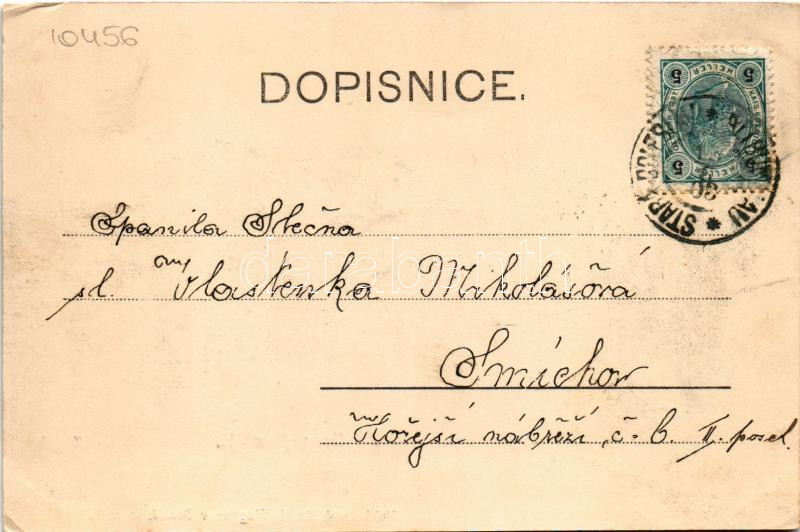 10456
DOPISNICE.
5 HELLER 5
5 HELLER 5
Spanila Slečna
sl. Vlastenka Mikolášová
Smíchov
Hořejší nábřeží, č. 6. II. posch.
darabanth